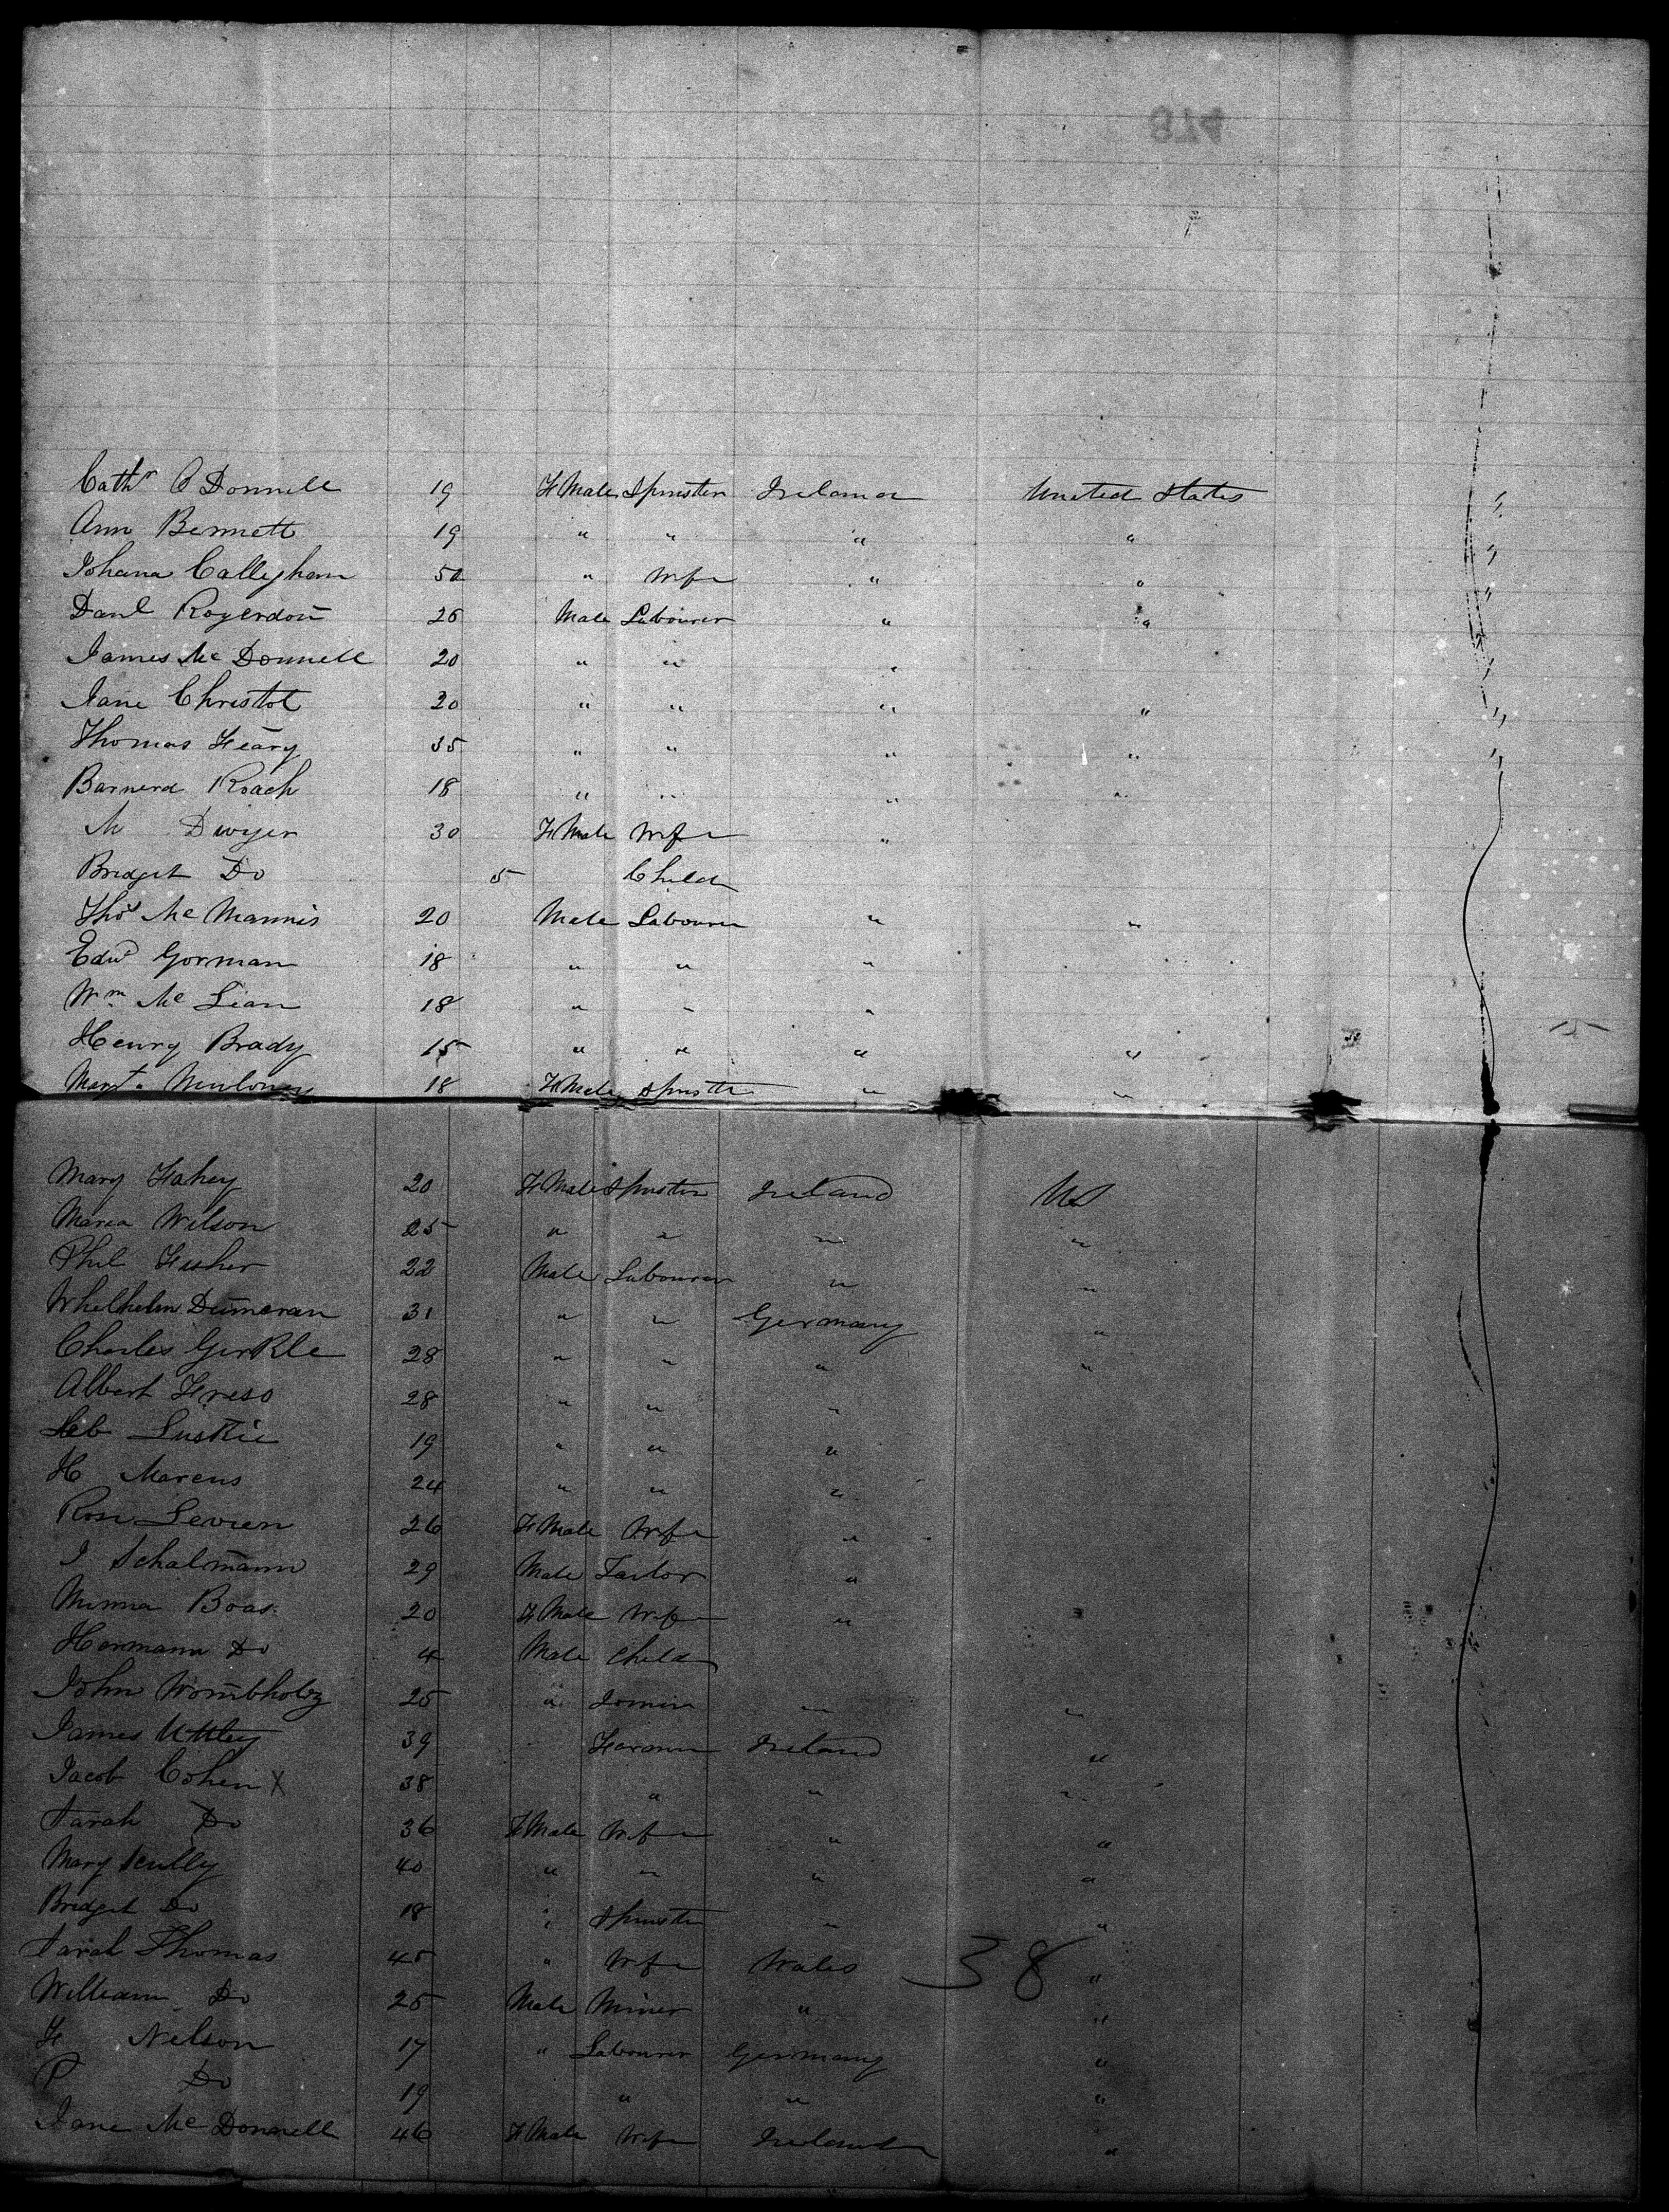 874
Cathr O Donnell 19 F Male Spinster Ireland United States
Ann Bennett 19 " " " "
Johana Calleghan 50 " Wife " "
Danl Rogerdon 26 Male Labourer " "
James Mc Donnell 20 " " "
Jane Christol 20 " " " "
Thomas Feary 35 " " " "
Barnerd Roach 18 " " " "
M Dwyer 30 F Male Wife "
Bridget Do 5 Child
Thos Mc Mannis 20 Male Labourer " "
Edwd Gorman 18 " " "
Wm Mc Lean 18 " " "
Henry Brady 15 " " " "
Margt Muloney 18 F Male Spinster " "
Mary Fahey 20 F Male Spinster Ireland US
Maria Wilson 25 " " " "
Phil Fisher 22 Male Labourer " "
Whelhelm Dumeran 31 " " Germany "
Charles Gerkle 28 " " " "
Albert Freso 28 " " "
Leb Luskie 19 " " "
H Marcus 24 " " "
Rose Levien 26 F Male Wife "
J Schalmann 29 Male Tailor "
Minna Boas 20 F Male Wife "
Hermann Do 4 Male Child
John Wombholtz 25 " " "
James Uttley 39 Farmer Ireland "
Jacob Cohen X 38 " " "
Sarah Do 36 F Male Wife " "
Mary Scully 40 " " " "
Bridget Do 18 " Spinster " "
Sarah Thomas 45 " Wife Wales 38 "
William Do 25 Male Miner " "
F Nelson 17 " Labourer Germany "
P Do 19 " " "
Jane Mc Donnell 46 F Male Wife Ireland "